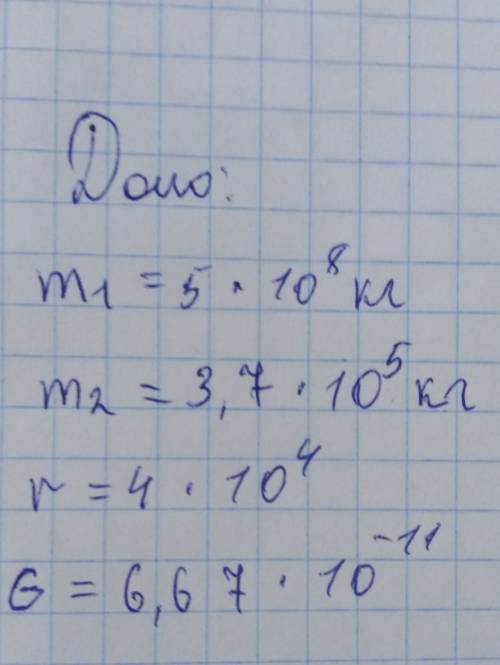 Дано:
m₁ = 5 · 10⁸ кг
m₂ = 3,7 · 10⁵ кг
r = 4 · 10⁴
G = 6,67 · 10⁻¹¹